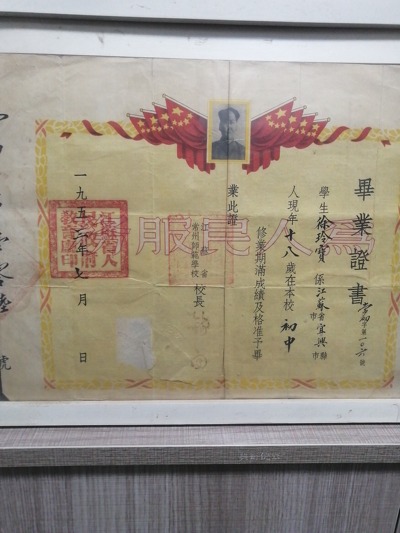 畢業證書
字第一〇六號
學生徐玲寶係江蘇省宜興縣市
人現年十八歲在本校初中
修業期滿成績及格准予畢
業此證
江蘇省
常州師範學校
校長
一九五二年七月 日
為人民服務
江蘇省人民政府教育廳印
號